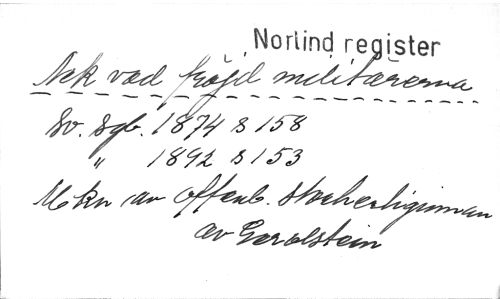 Norlind register
Nek vad fröjd militärerna
Sv. Sgb. 1874 s 158
" 1892 s 153
Mkn av Offenb. storhertiginnan
av Gerolstein